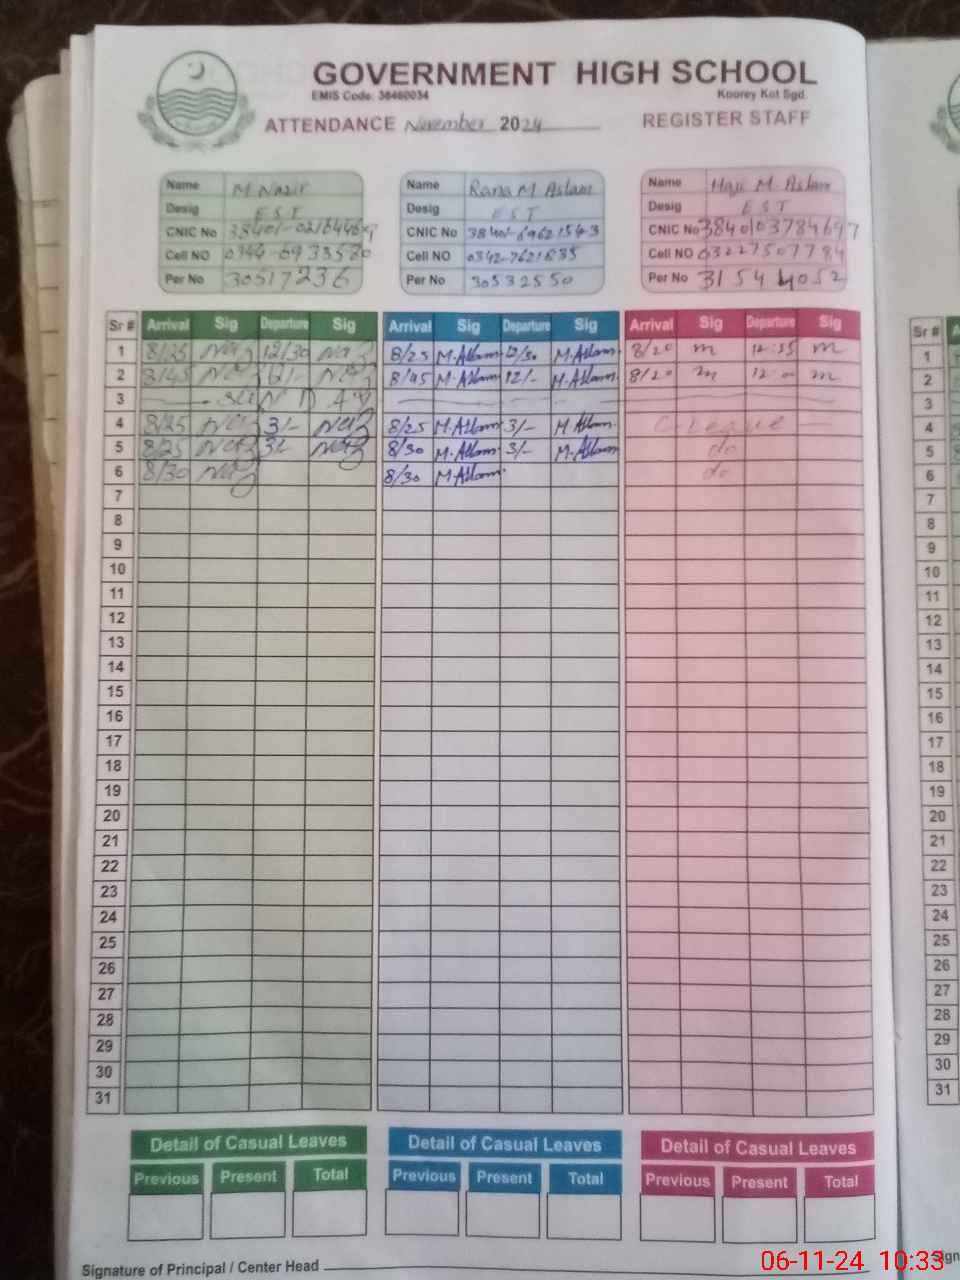 GOVERNMENT HIGH SCHOOL
EMIS Code: 38460034 Koorey Kot Sgd.
ATTENDANCE November 2024 REGISTER STAFF
Name M Nazir Name Rana M Aslam Name Haji M. Aslam
Desig EST Desig EST Desig EST
CNIC No CNIC No CNIC No 3840103784697
Cell NO 0344-6933580 Cell NO 0342-7621835 Cell NO 03227507784
Per No 30517236 Per No 30532550 Per No 31544052
Sr # Arrival Sig Departure Sig Arrival Sig Departure Sig Arrival Sig Departure Sig Sr #
1 8/25 Naz 12/30 Naz 8/25 M.Aslam 12/30 M.Aslam 8/20 m 12:35 m 1
2 8/45 Naz 12/- Naz 8/45 M.Aslam 12/- M.Aslam 8/20 m 12:00 m 2
3 SUNDAY 3
4 8/25 Naz 3/- Naz 8/25 M.Aslam 3/- M.Aslam C-Leave 4
5 8/25 Naz 3/- Naz 8/30 M.Aslam 3/- M.Aslam do 5
6 8/30 Naz 8/30 M.Aslam do 6
7 7
8 8
9 9
10 10
11 11
12 12
13 13
14 14
15 15
16 16
17 17
18 18
19 19
20 20
21 21
22 22
23 23
24 24
25 25
26 26
27 27
28 28
29 29
30 30
31 31
Detail of Casual Leaves Detail of Casual Leaves Detail of Casual Leaves
Previous Present Total Previous Present Total Previous Present Total
Signature of Principal / Center Head
06-11-24 10:33